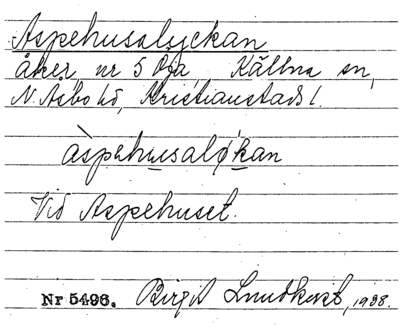 Aspehusalyckan
åker, nr 5 Öja, Källna sn,
N. Åsbo hd, Kristianstads l.
àspehusaløkan
Vid Aspehuset.
Nr 5496. Birgit Lundkvist, 1938.